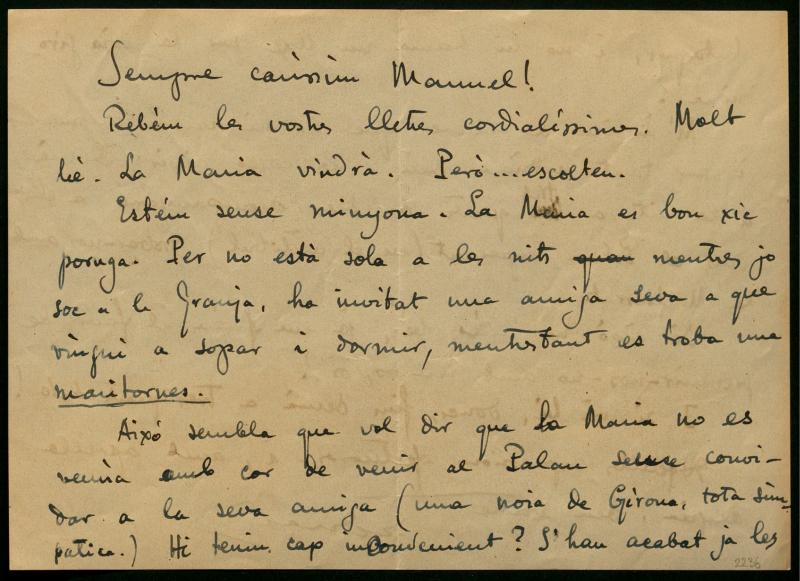 Sempre caríssim Manuel!
Rebém les vostres lletres cordialíssimes. Molt
bé. La Maria vindrà. Però...escolten.
Estém sense minyona. La Maria es bon xic
poruga. Per no està sola a les nits quan mentres jo
soc a la Granja, ha invitat una amiga seva a que
vingui a sopar i dormir, mentrestant es troba una
maritornes.
Aixó sembla que vol dir que la Maria no es
veuria amb cor de venir al Palau sense convi-
dar a la seva amiga (una noia de Girona, tota sim-
patica.) Hi tenim cap inconvenient? S'han acabat ja les
2236